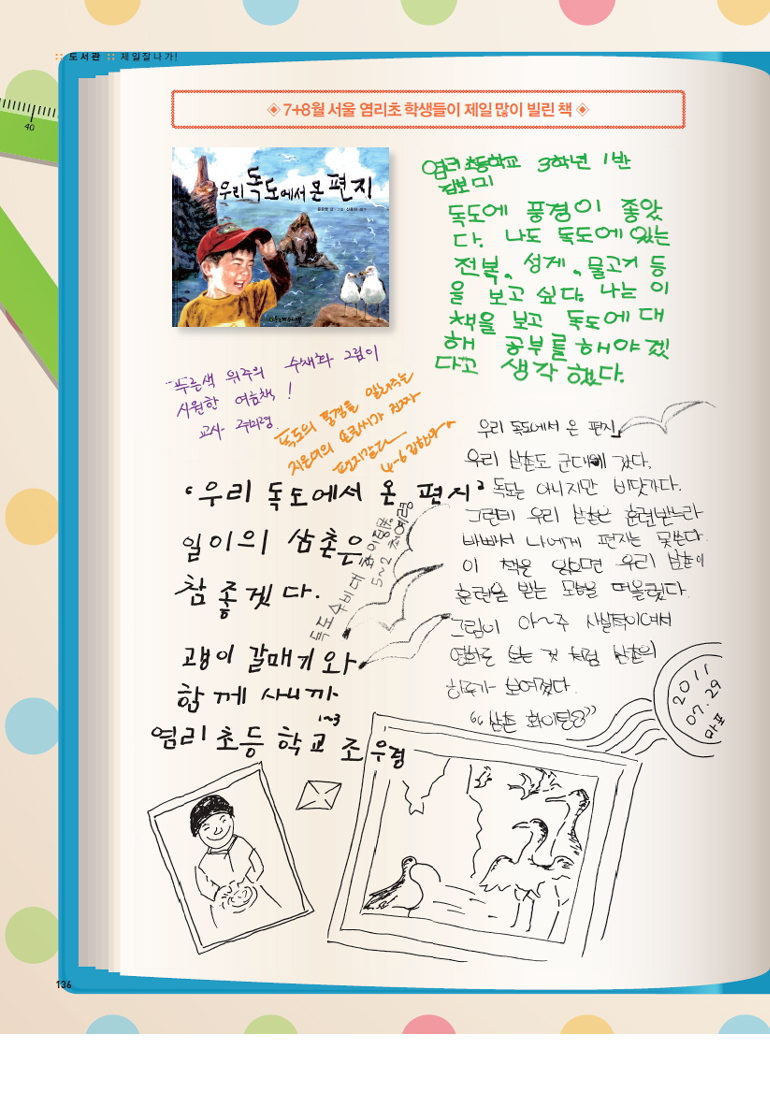 도서관 제일잘나가!
40
7+8월 서울 염리초 학생들이 제일 많이 빌린 책
우리 독도에서 온 편지
염리초등학교 3학년 1반
독도에 풍경이 좋았
다. 나도 독도에 있는
전복, 성게, 물고기 등
을 보고 싶다. 나는 이
책을 보고 독도에 대
해 공부를 해야 겠
다고 생각 했다.
"푸른색 위주의 수채화 그림이
시원한 여름책!
교사
독도의 풍경을 알려주는
편지같다
4-6
우리 독도에서 온 편지
우리 삼촌도 군대에 갔다.
독도는 아니지만 바닷가다.
그런데 우리 삼촌은 훈련받느라
바빠서 나에게 편지는 못쓴다.
이 책을 읽으면 우리 삼촌이
훈련을 받는 모습을 떠올렸다.
그림이 아~주 사실적이여서
영화로 보는 것 처럼 삼촌의
하루가 보여졌다.
"삼촌 화이팅!"
'우리 독도에서 온 편지'
일이의 삼촌은
참 좋겠다.
괭이 갈매기와
함께 사니까
1-3
염리초등학교 조우령
독도수비대 화이팅!
5-2
2011
07.29
마포
136